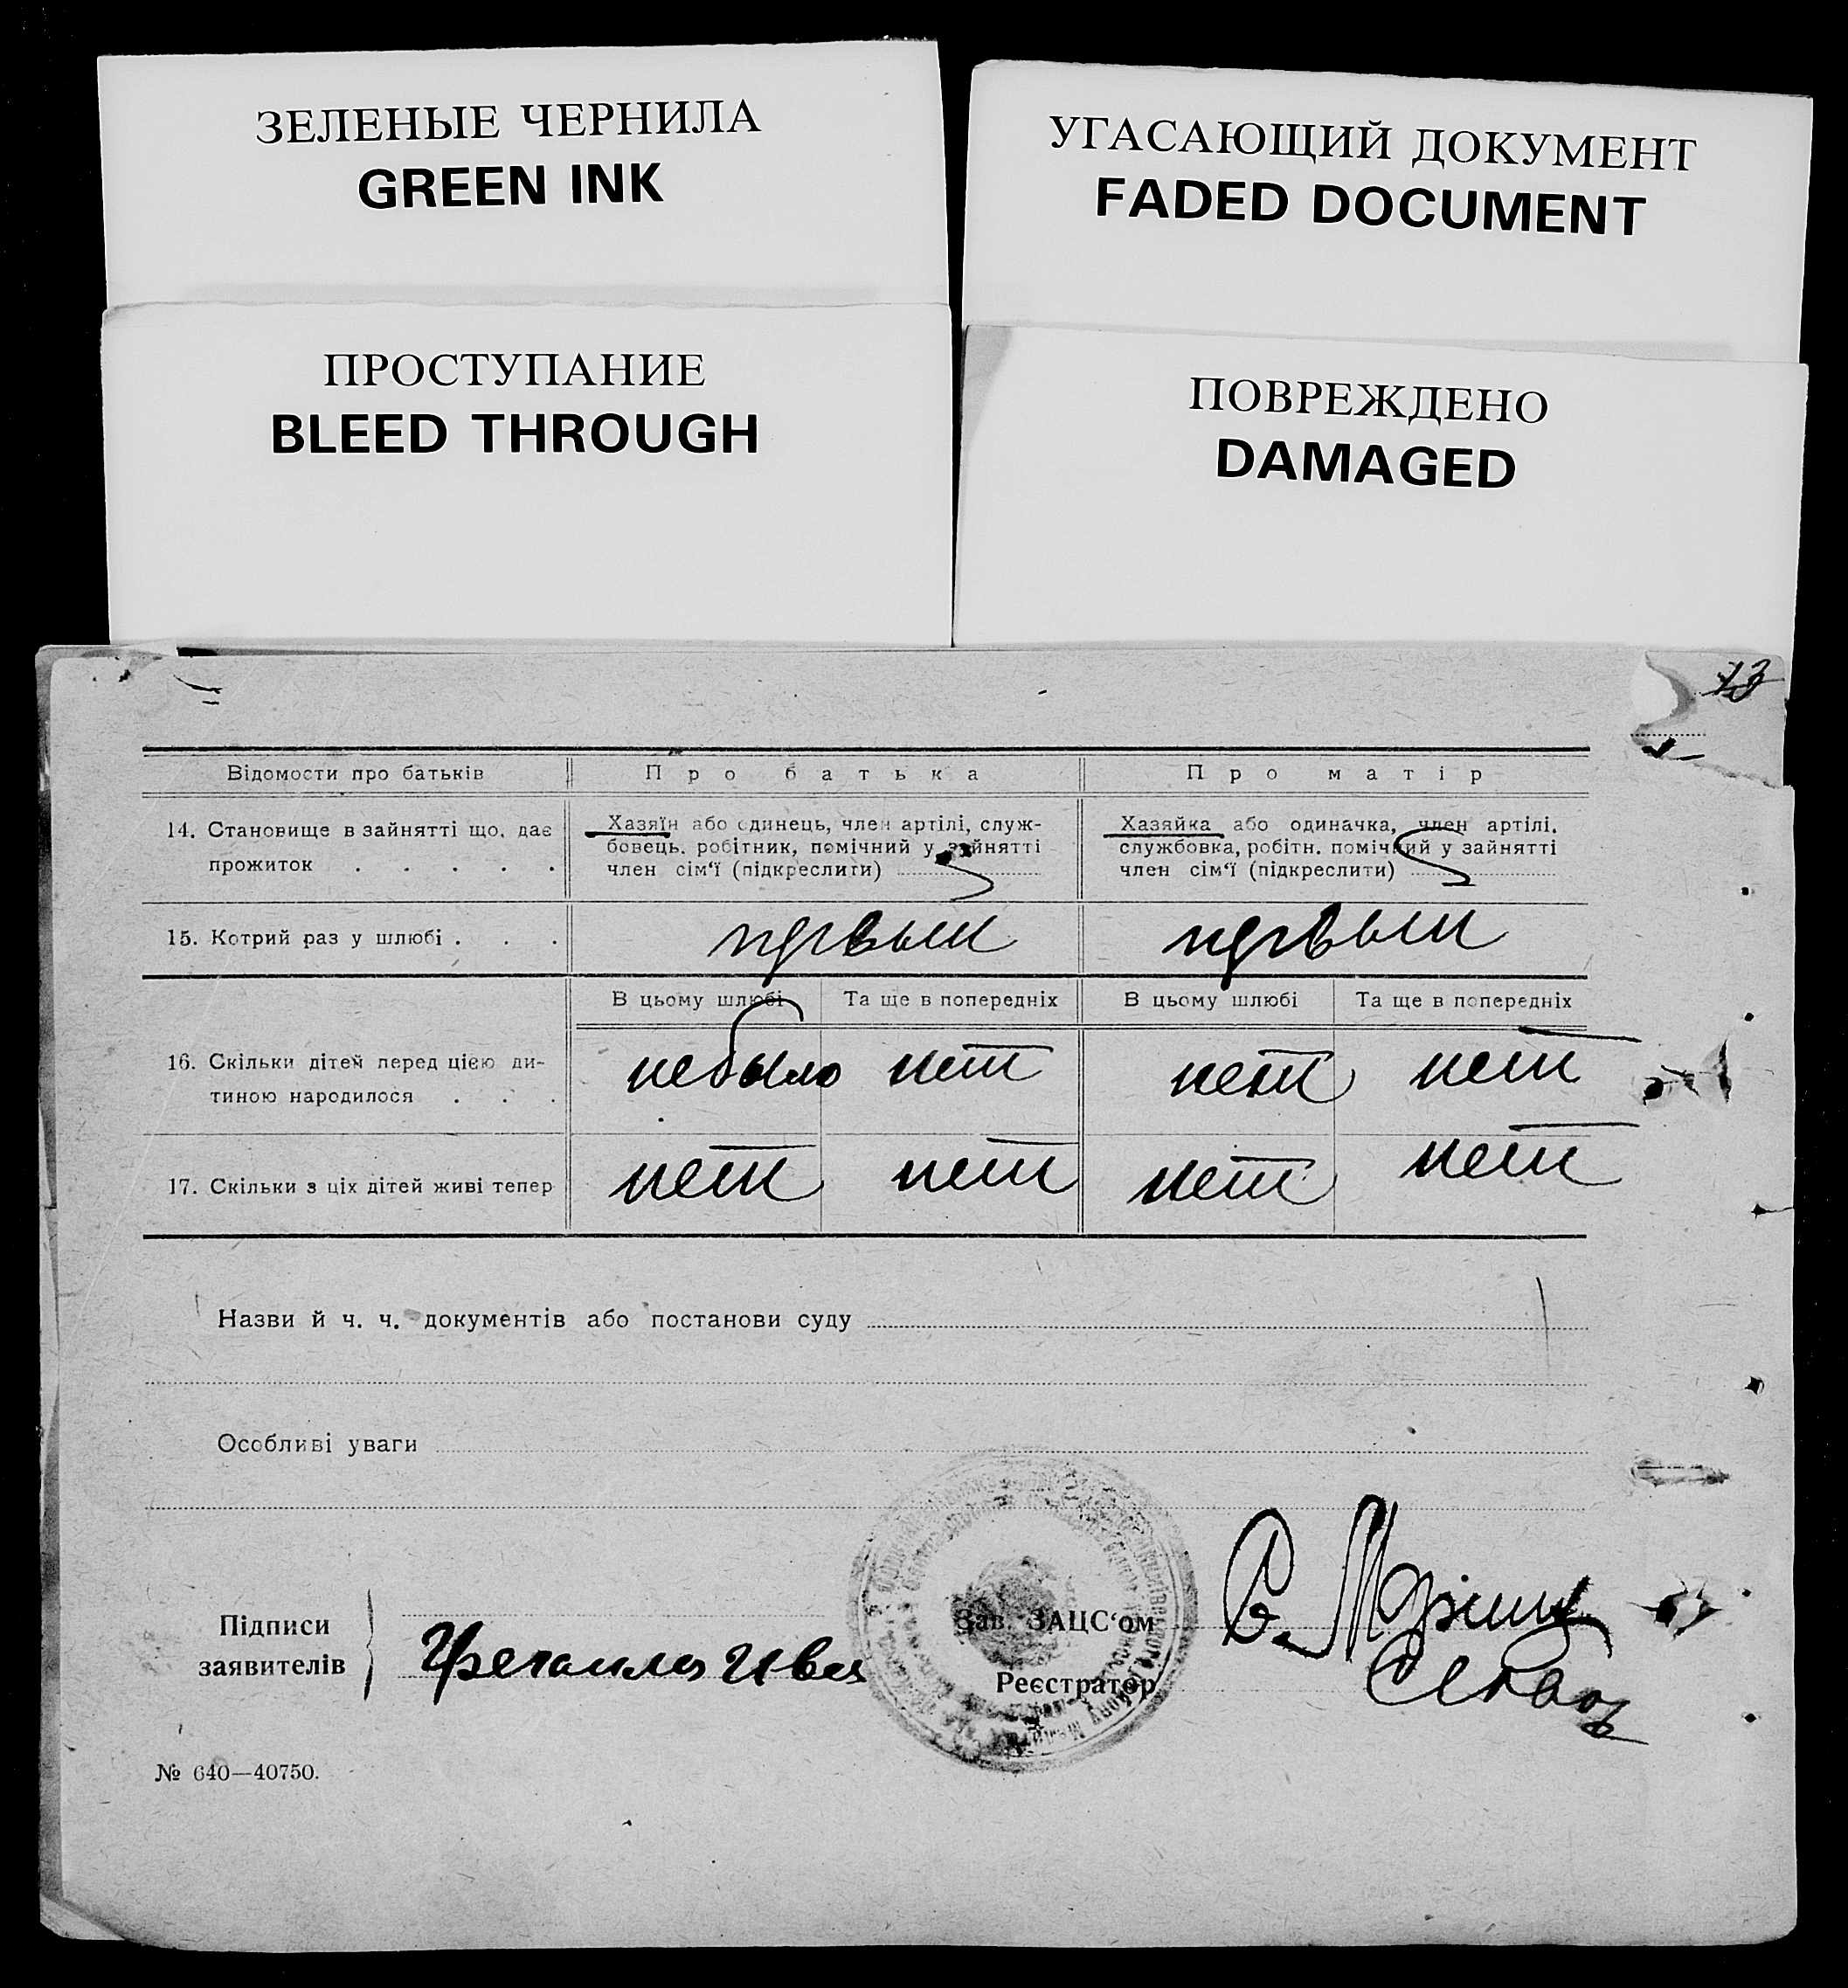 ЗЕЛЕНЫЕ ЧЕРНИЛА
GREEN INK
УГАСАЮЩИЙ ДОКУМЕНТ
FADED DOCUMENT
ПРОСТУПАНИЕ
BLEED THROUGH
ПОВРЕЖДЕНО
DAMAGED
13
Відомости про батьків
Про батька
Про матір
14. Становище в зайнятті що, дає
прожиток . . . . .
Хазяїн або одинець, член артілі, служ-
бовець. робітник, помічний у зайнятті
член сім‘ї (підкреслити)
Хазяйка або одиначка, член артілі.
службовка, робітн. помічний у зайнятті
член сім‘ї (підкреслити)
15. Котрий раз у шлюбі . . .
первый
первый
В цьому шлюбі
Та ще в попередніх
В цьому шлюбі
Та ще в попередніх
16. Скільки дітей перед цією ди-
тиною народилося . . .
небыло
нет
нет
нет
17. Скільки з ціх дітей живі тепер
нет
нет
нет
нет
Назви й ч. ч. документів або постанови суду
Особливі уваги
Підписи
заявителів
Зав. ЗАЦС‘ом
Реєстратор
№ 640—40750.